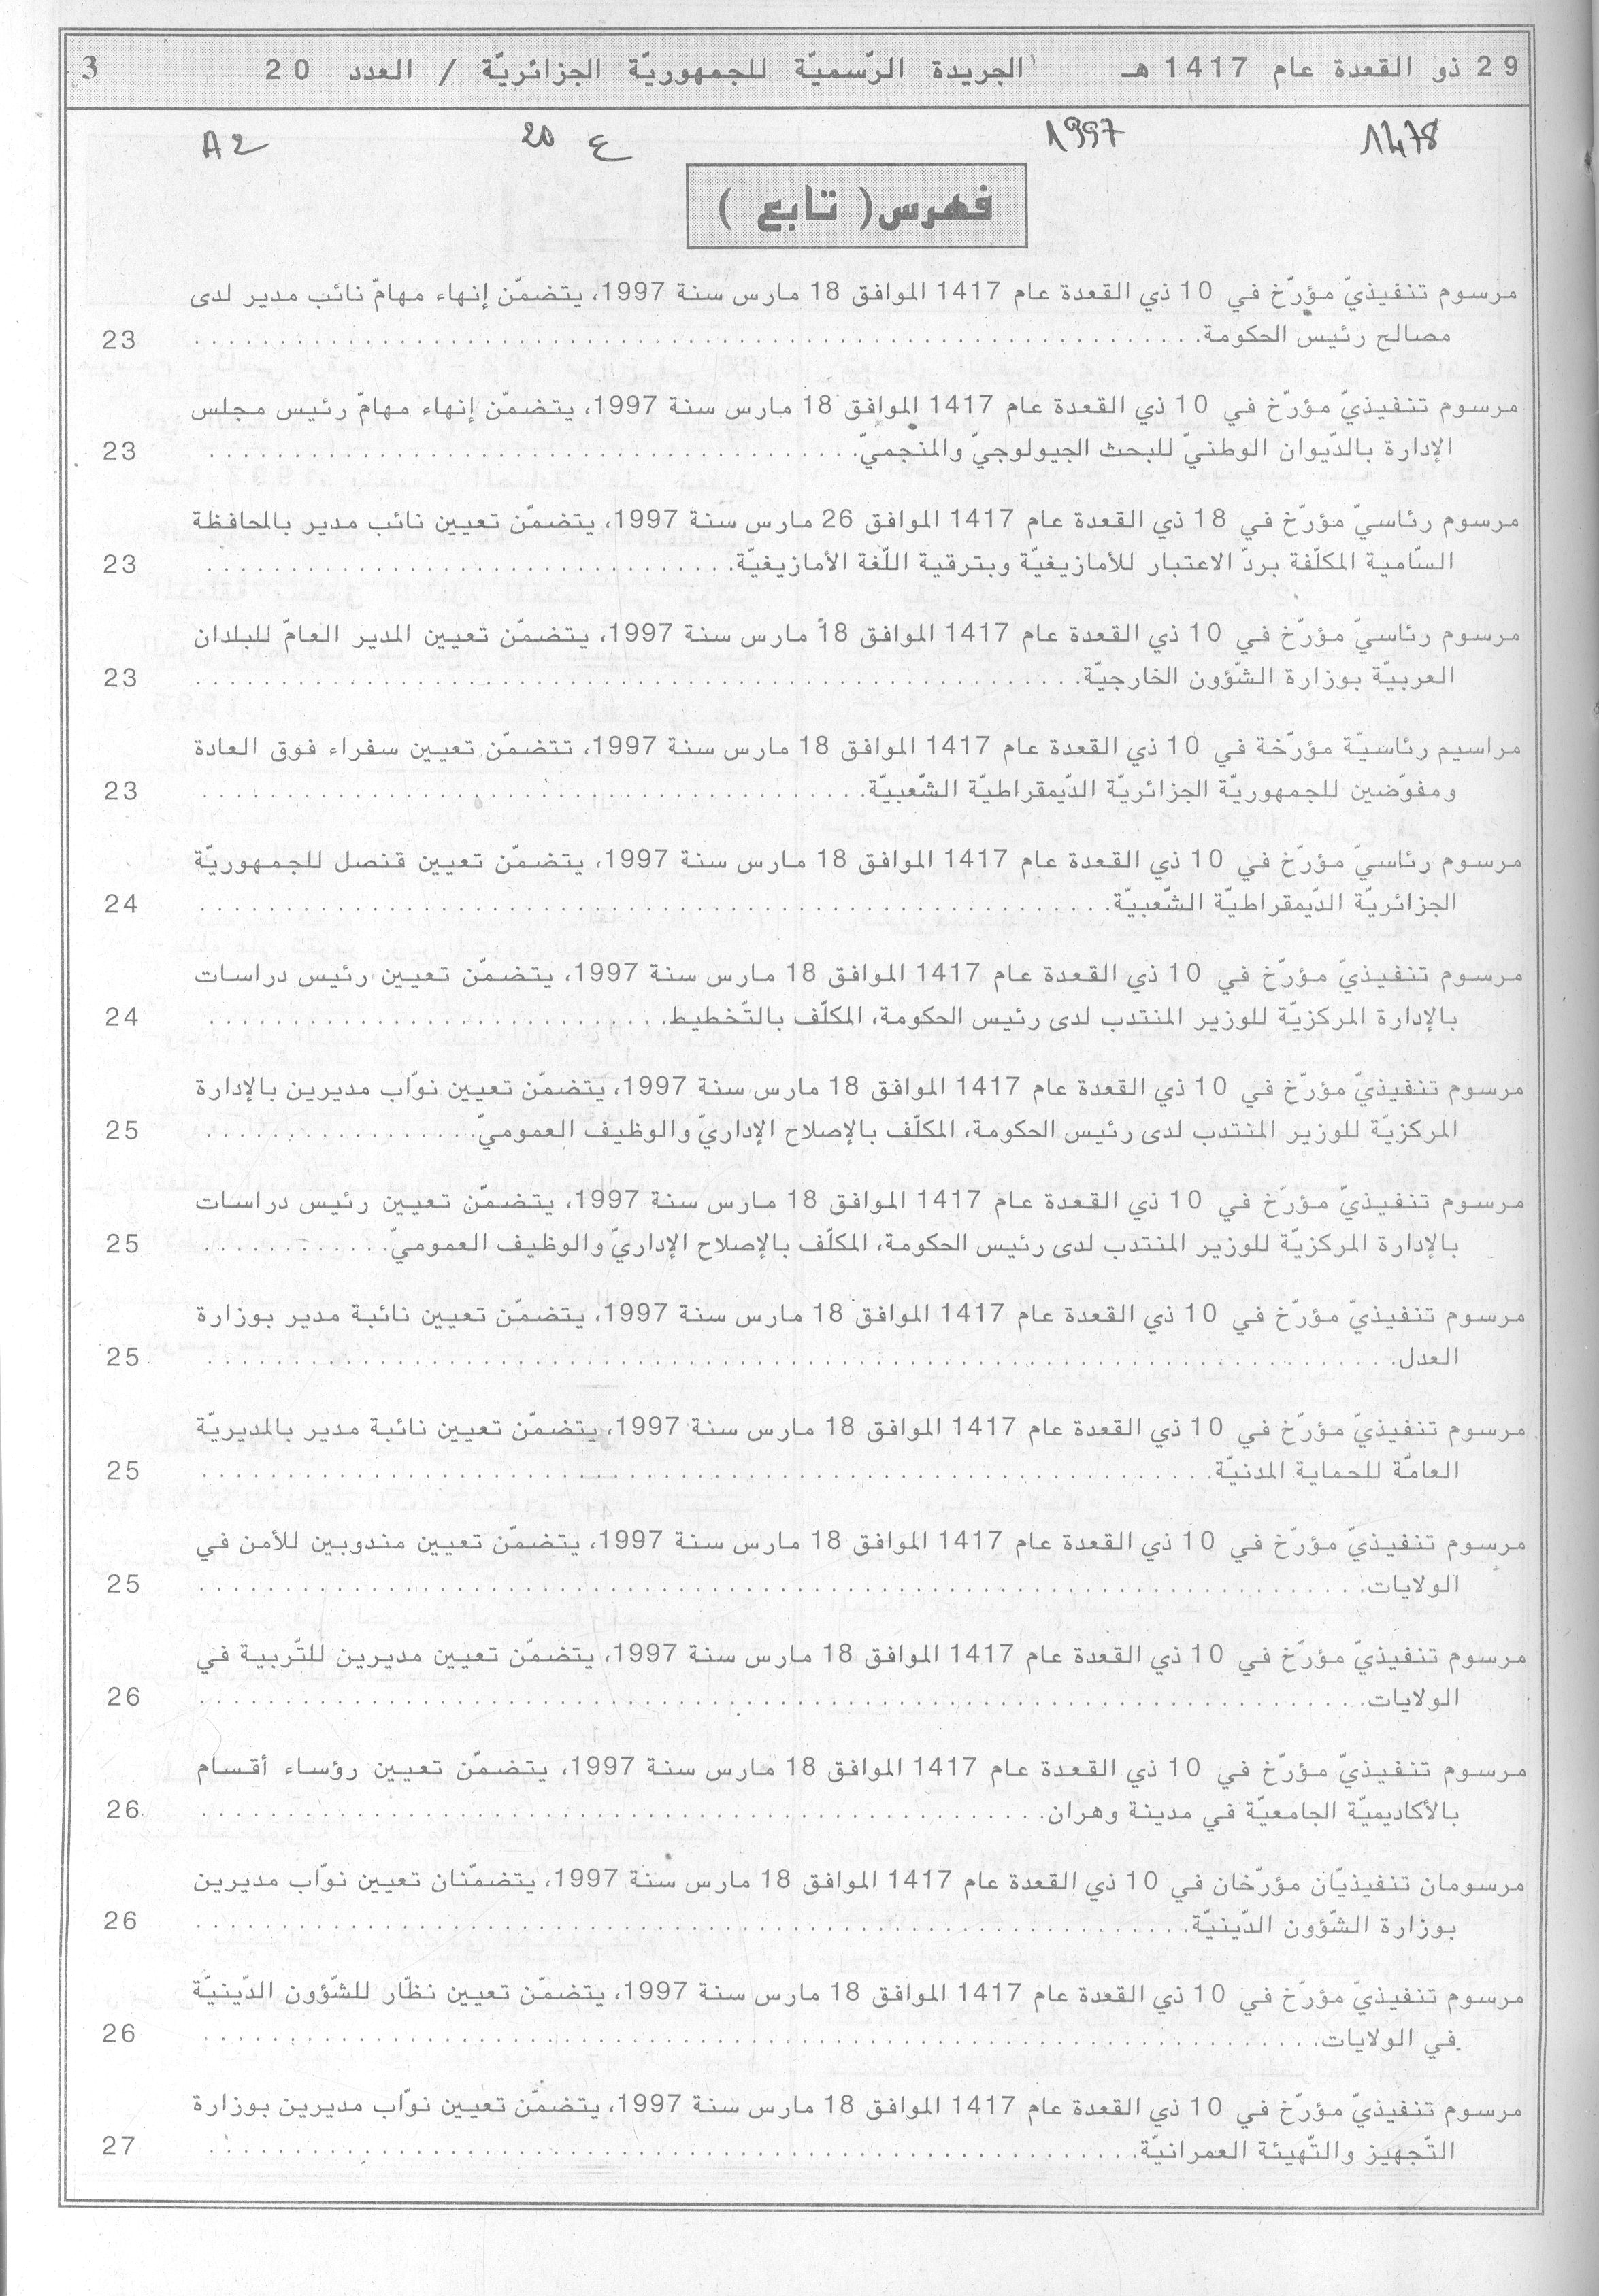 29 ذو القعدة عام 1417 هـ الجريدة الرّسميّة للجمهوريّة الجزائريّة / العدد 20 3
1478 1997 ع 20 A2
فهرس ( تابع )
مرسوم تنفيذيّ مؤرّخ في 10 ذي القعدة عام 1417 الموافق 18 مارس سنة 1997، يتضمّن إنهاء مهامّ نائب مدير لدى
مصالح رئيس الحكومة. 23
مرسوم تنفيذيّ مؤرّخ في 10 ذي القعدة عام 1417 الموافق 18 مارس سنة 1997، يتضمّن إنهاء مهامّ رئيس مجلس
الإدارة بالدّيوان الوطنيّ للبحث الجيولوجيّ والمنجميّ. 23
مرسوم رئاسيّ مؤرّخ في 18 ذي القعدة عام 1417 الموافق 26 مارس سنة 1997، يتضمّن تعيين نائب مدير بالمحافظة
السّامية المكلّفة بردّ الاعتبار للأمازيغيّة وبترقية اللّغة الأمازيغيّة. 23
مرسوم رئاسيّ مؤرّخ في 10 ذي القعدة عام 1417 الموافق 18 مارس سنة 1997، يتضمّن تعيين المدير العامّ للبلدان
العربيّة بوزارة الشّؤون الخارجيّة. 23
مراسيم رئاسيّة مؤرّخة في 10 ذي القعدة عام 1417 الموافق 18 مارس سنة 1997، تتضمّن تعيين سفراء فوق العادة
ومفوّضين للجمهوريّة الجزائريّة الدّيمقراطيّة الشّعبيّة. 23
مرسوم رئاسيّ مؤرّخ في 10 ذي القعدة عام 1417 الموافق 18 مارس سنة 1997، يتضمّن تعيين قنصل للجمهوريّة
الجزائريّة الدّيمقراطيّة الشّعبيّة. 24
مرسوم تنفيذيّ مؤرّخ في 10 ذي القعدة عام 1417 الموافق 18 مارس سنة 1997، يتضمّن تعيين رئيس دراسات
بالإدارة المركزيّة للوزير المنتدب لدى رئيس الحكومة، المكلّف بالتّخطيط. 24
مرسوم تنفيذيّ مؤرّخ في 10 ذي القعدة عام 1417 الموافق 18 مارس سنة 1997، يتضمّن تعيين نوّاب مديرين بالإدارة
المركزيّة للوزير المنتدب لدى رئيس الحكومة، المكلّف بالإصلاح الإداريّ والوظيف العموميّ. 25
مرسوم تنفيذيّ مؤرّخ في 10 ذي القعدة عام 1417 الموافق 18 مارس سنة 1997، يتضمّن تعيين رئيس دراسات
بالإدارة المركزيّة للوزير المنتدب لدى رئيس الحكومة، المكلّف بالإصلاح الإداريّ والوظيف العموميّ. 25
مرسوم تنفيذيّ مؤرّخ في 10 ذي القعدة عام 1417 الموافق 18 مارس سنة 1997، يتضمّن تعيين نائبة مدير بوزارة
العدل. 25
مرسوم تنفيذيّ مؤرّخ في 10 ذي القعدة عام 1417 الموافق 18 مارس سنة 1997، يتضمّن تعيين نائبة مدير بالمديريّة
العامّة للحماية المدنيّة. 25
مرسوم تنفيذيّ مؤرّخ في 10 ذي القعدة عام 1417 الموافق 18 مارس سنة 1997، يتضمّن تعيين مندوبين للأمن في
الولايات. 25
مرسوم تنفيذيّ مؤرّخ في 10 ذي القعدة عام 1417 الموافق 18 مارس سنة 1997، يتضمّن تعيين مديرين للتّربية في
الولايات. 26
مرسوم تنفيذيّ مؤرّخ في 10 ذي القعدة عام 1417 الموافق 18 مارس سنة 1997، يتضمّن تعيين رؤساء أقسام
بالأكاديميّة الجامعيّة في مدينة وهران. 26
مرسومان تنفيذيّان مؤرّخان في 10 ذي القعدة عام 1417 الموافق 18 مارس سنة 1997، يتضمّنان تعيين نوّاب مديرين
بوزارة الشّؤون الدّينيّة. 26
مرسوم تنفيذيّ مؤرّخ في 10 ذي القعدة عام 1417 الموافق 18 مارس سنة 1997، يتضمّن تعيين نظّار للشّؤون الدّينيّة
في الولايات. 26
مرسوم تنفيذيّ مؤرّخ في 10 ذي القعدة عام 1417 الموافق 18 مارس سنة 1997، يتضمّن تعيين نوّاب مديرين بوزارة
التّجهيز والتّهيئة العمرانيّة. 27